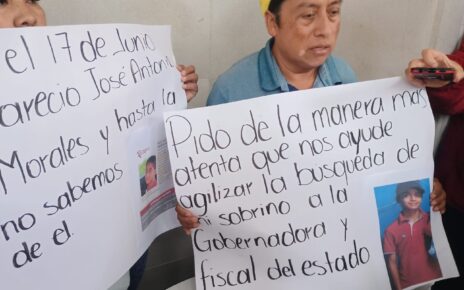 el 17 de Junio
arecio José Antoni
Morales y hasta la
no sabemos
de el.
Pido de la manera mas
atenta que nos ayude
agilizar la busqueda de
mi sobrino a la
Gobernadora y
fiscal del estado